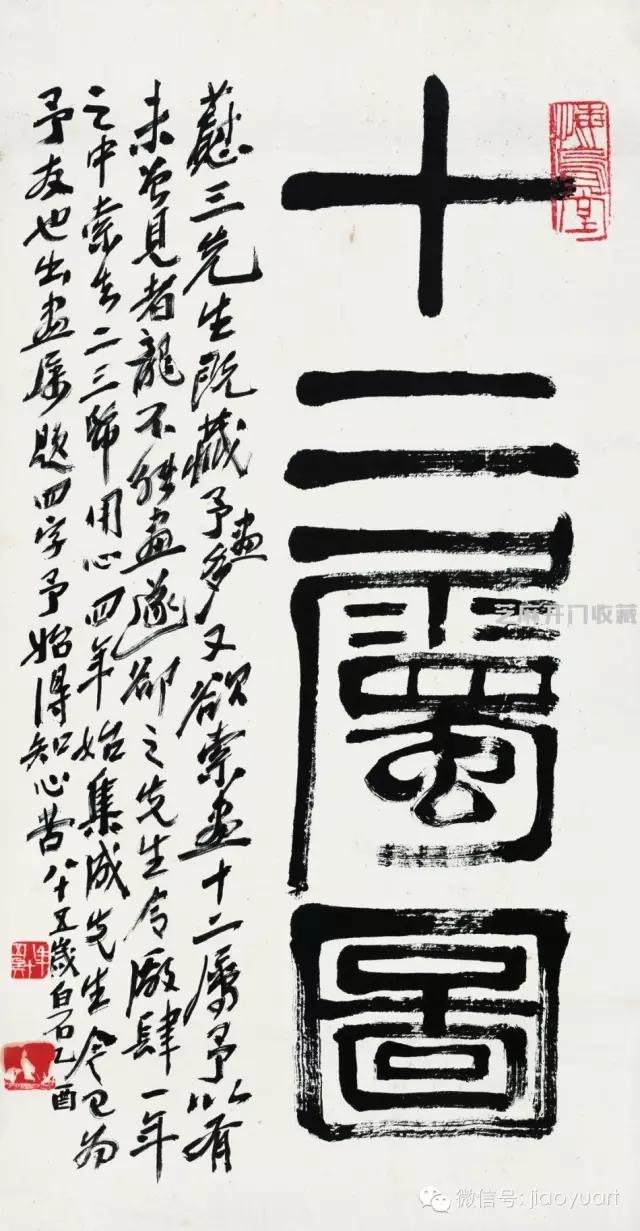 悔烏堂
十二屬圖
三先生既藏予畫多又欲索畫十二屬予以有
未曾見者龍不能畫遂卻之先生令廠肆一年
之中索去二三帋用心四年始集成先生今已為
予友也出畫屬題四字予始得知心苦八十五歲白石乙酉
芝麻开门收藏
微信号: jiaoyuart